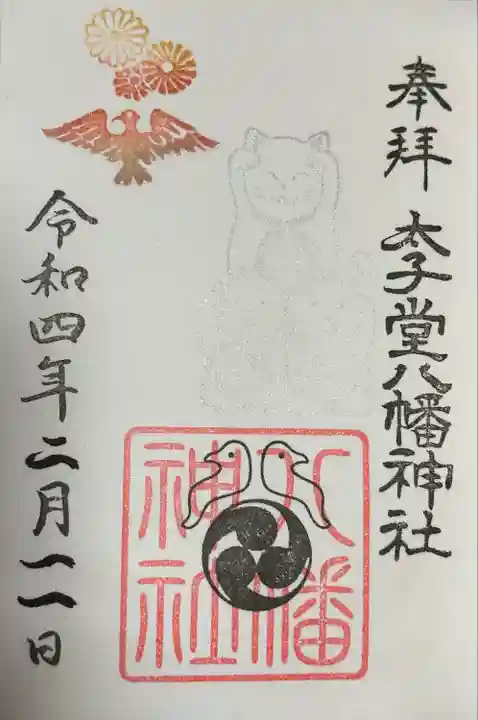 奉拝 太子堂八幡神社
八幡
神社
令和四年二月十一日